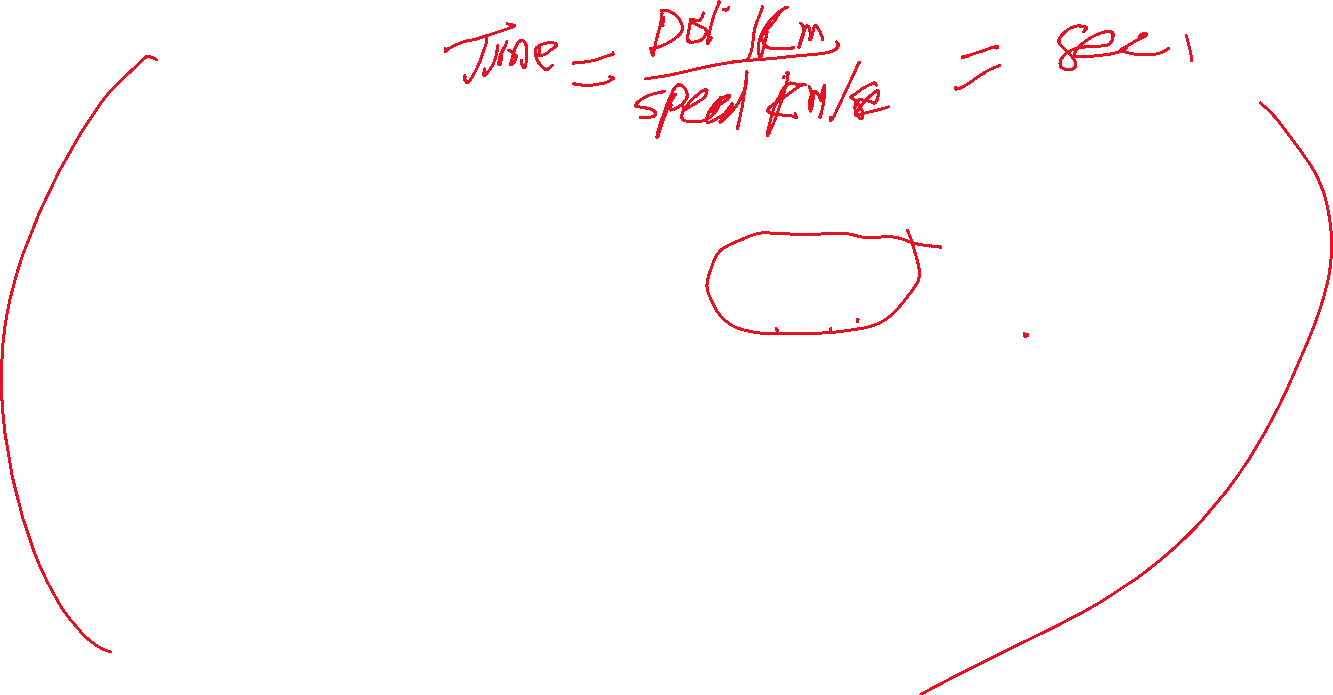 Time = Dist Km / speed Km/se = sec